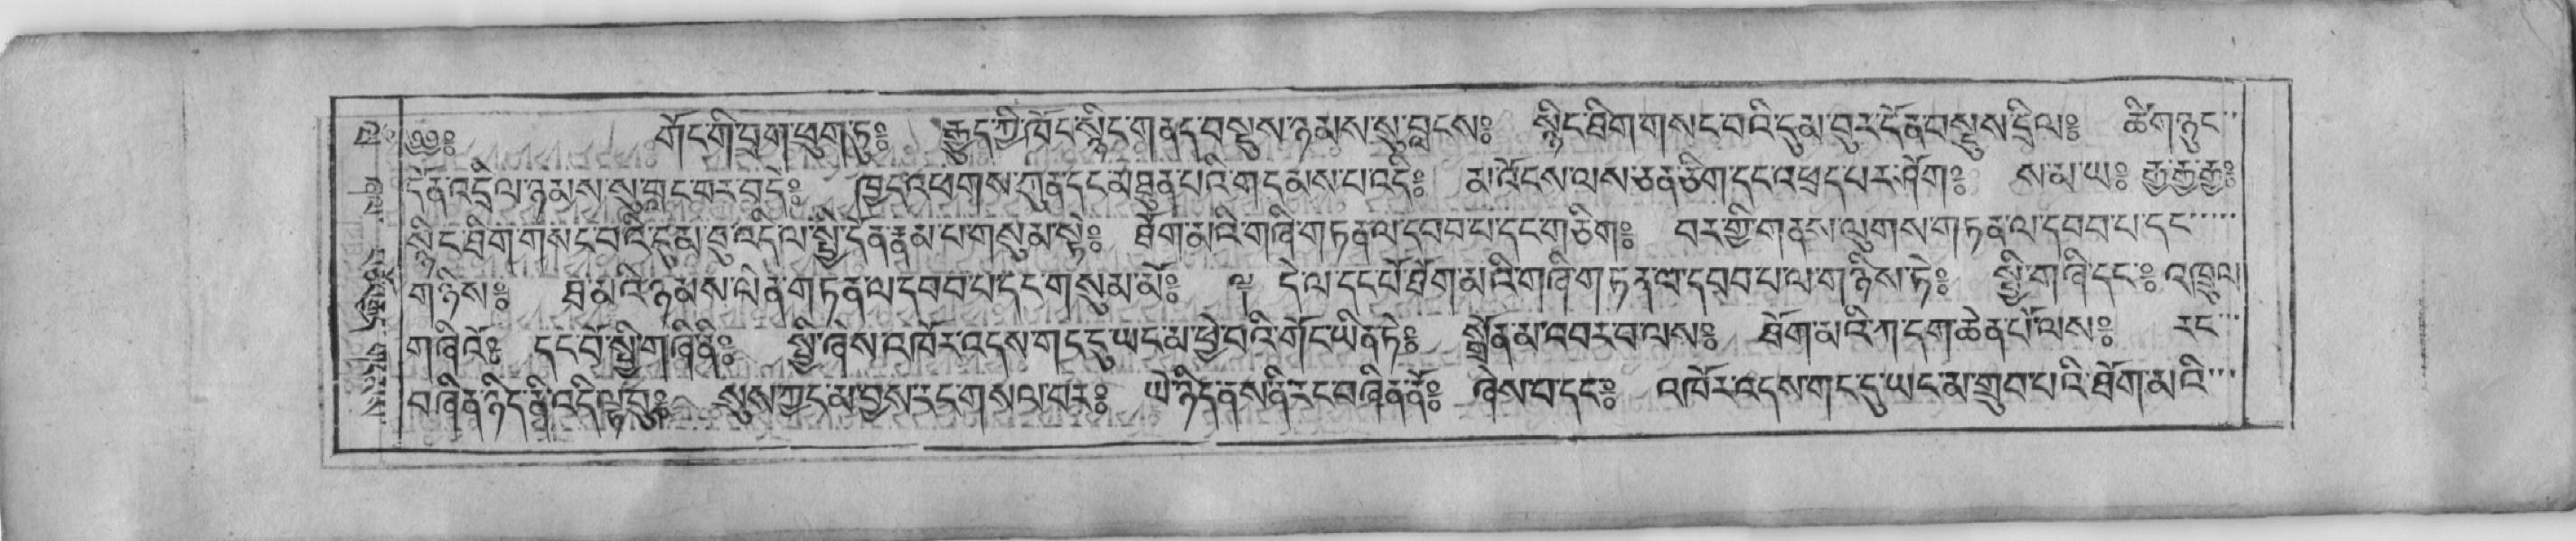 ༄༅༔ གོང་གི་བྲག་ཕྲུག་ཏུ༔ རྒྱུད་ཀྱི་ཁོང་སྙིང་གནད་བསྡུས་ཉམས་སུ་བླངས༔ སྙིང་ཐིག་གསང་བའི་དུམ་བུར་དོན་བསྡུས་དྲིལ༔ ཚིག་ཉུང་
དོན་འདྲིལ་ཉམས་སུ་བླང་བར་བདེ༔ ཁྱད་འཕགས་ཀུན་དང་མཐུན་པའི་གདམས་པ་འདི༔ མ་འོངས་ལས་ཅན་ཅིག་དང་འཕྲད་པར་ཤོག༔ ས་མ་ཡ༔ རྒྱ་རྒྱ་རྒྱ༔
སྙིང་ཐིག་གསང་བའི་དུམ་བུ་འདི་ལ་སྤྱི་དོན་རྣམ་པ་གསུམ་སྟེ༔ ཐོག་མའི་གཞི་གཏན་ལ་དབབ་པ་དང་གཅིག༔ བར་གྱི་གནས་ལུགས་གཏན་ལ་དབབ་པ་དང་
གཉིས༔ ཐ་མའི་ཉམས་ལེན་གཏན་ལ་དབབ་པ་དང་གསུམ་མོ༔ དེ་ལ་དང་པོ་ཐོག་མའི་གཞི་གཏན་ལ་དབབ་པ་ལ་གཉིས་ཏེ༔ སྤྱི་གཞི་དང༔ འཁྲུལ་
གཞིའོ༔ དང་པོ་སྤྱི་གཞི་ནི༔ སྤྱི་ཞེས་འཁོར་འདས་གང་དུ་ཡང་མ་ཕྱེ་བའི་གོང་ཡིན་ཏེ༔ སྒྲོན་མ་འབར་བ་ལས༔ ཐོག་མའི་ཀ་དག་ཆེན་པོ་ལས༔ རང་
བཞིན་ཉིད་ནི་འདི་ལྟ་བུ༔ སུས་ཀྱང་མ་བྱས་རང་གསལ་བར༔ ཡེ་ཉིད་ནས་ནི་རང་བཞིན་ནོ༔ ཞེས་པ་དང༔ འཁོར་འདས་གང་དུ་ཡང་མ་གྲུབ་པའི་ཐོག་མའི་